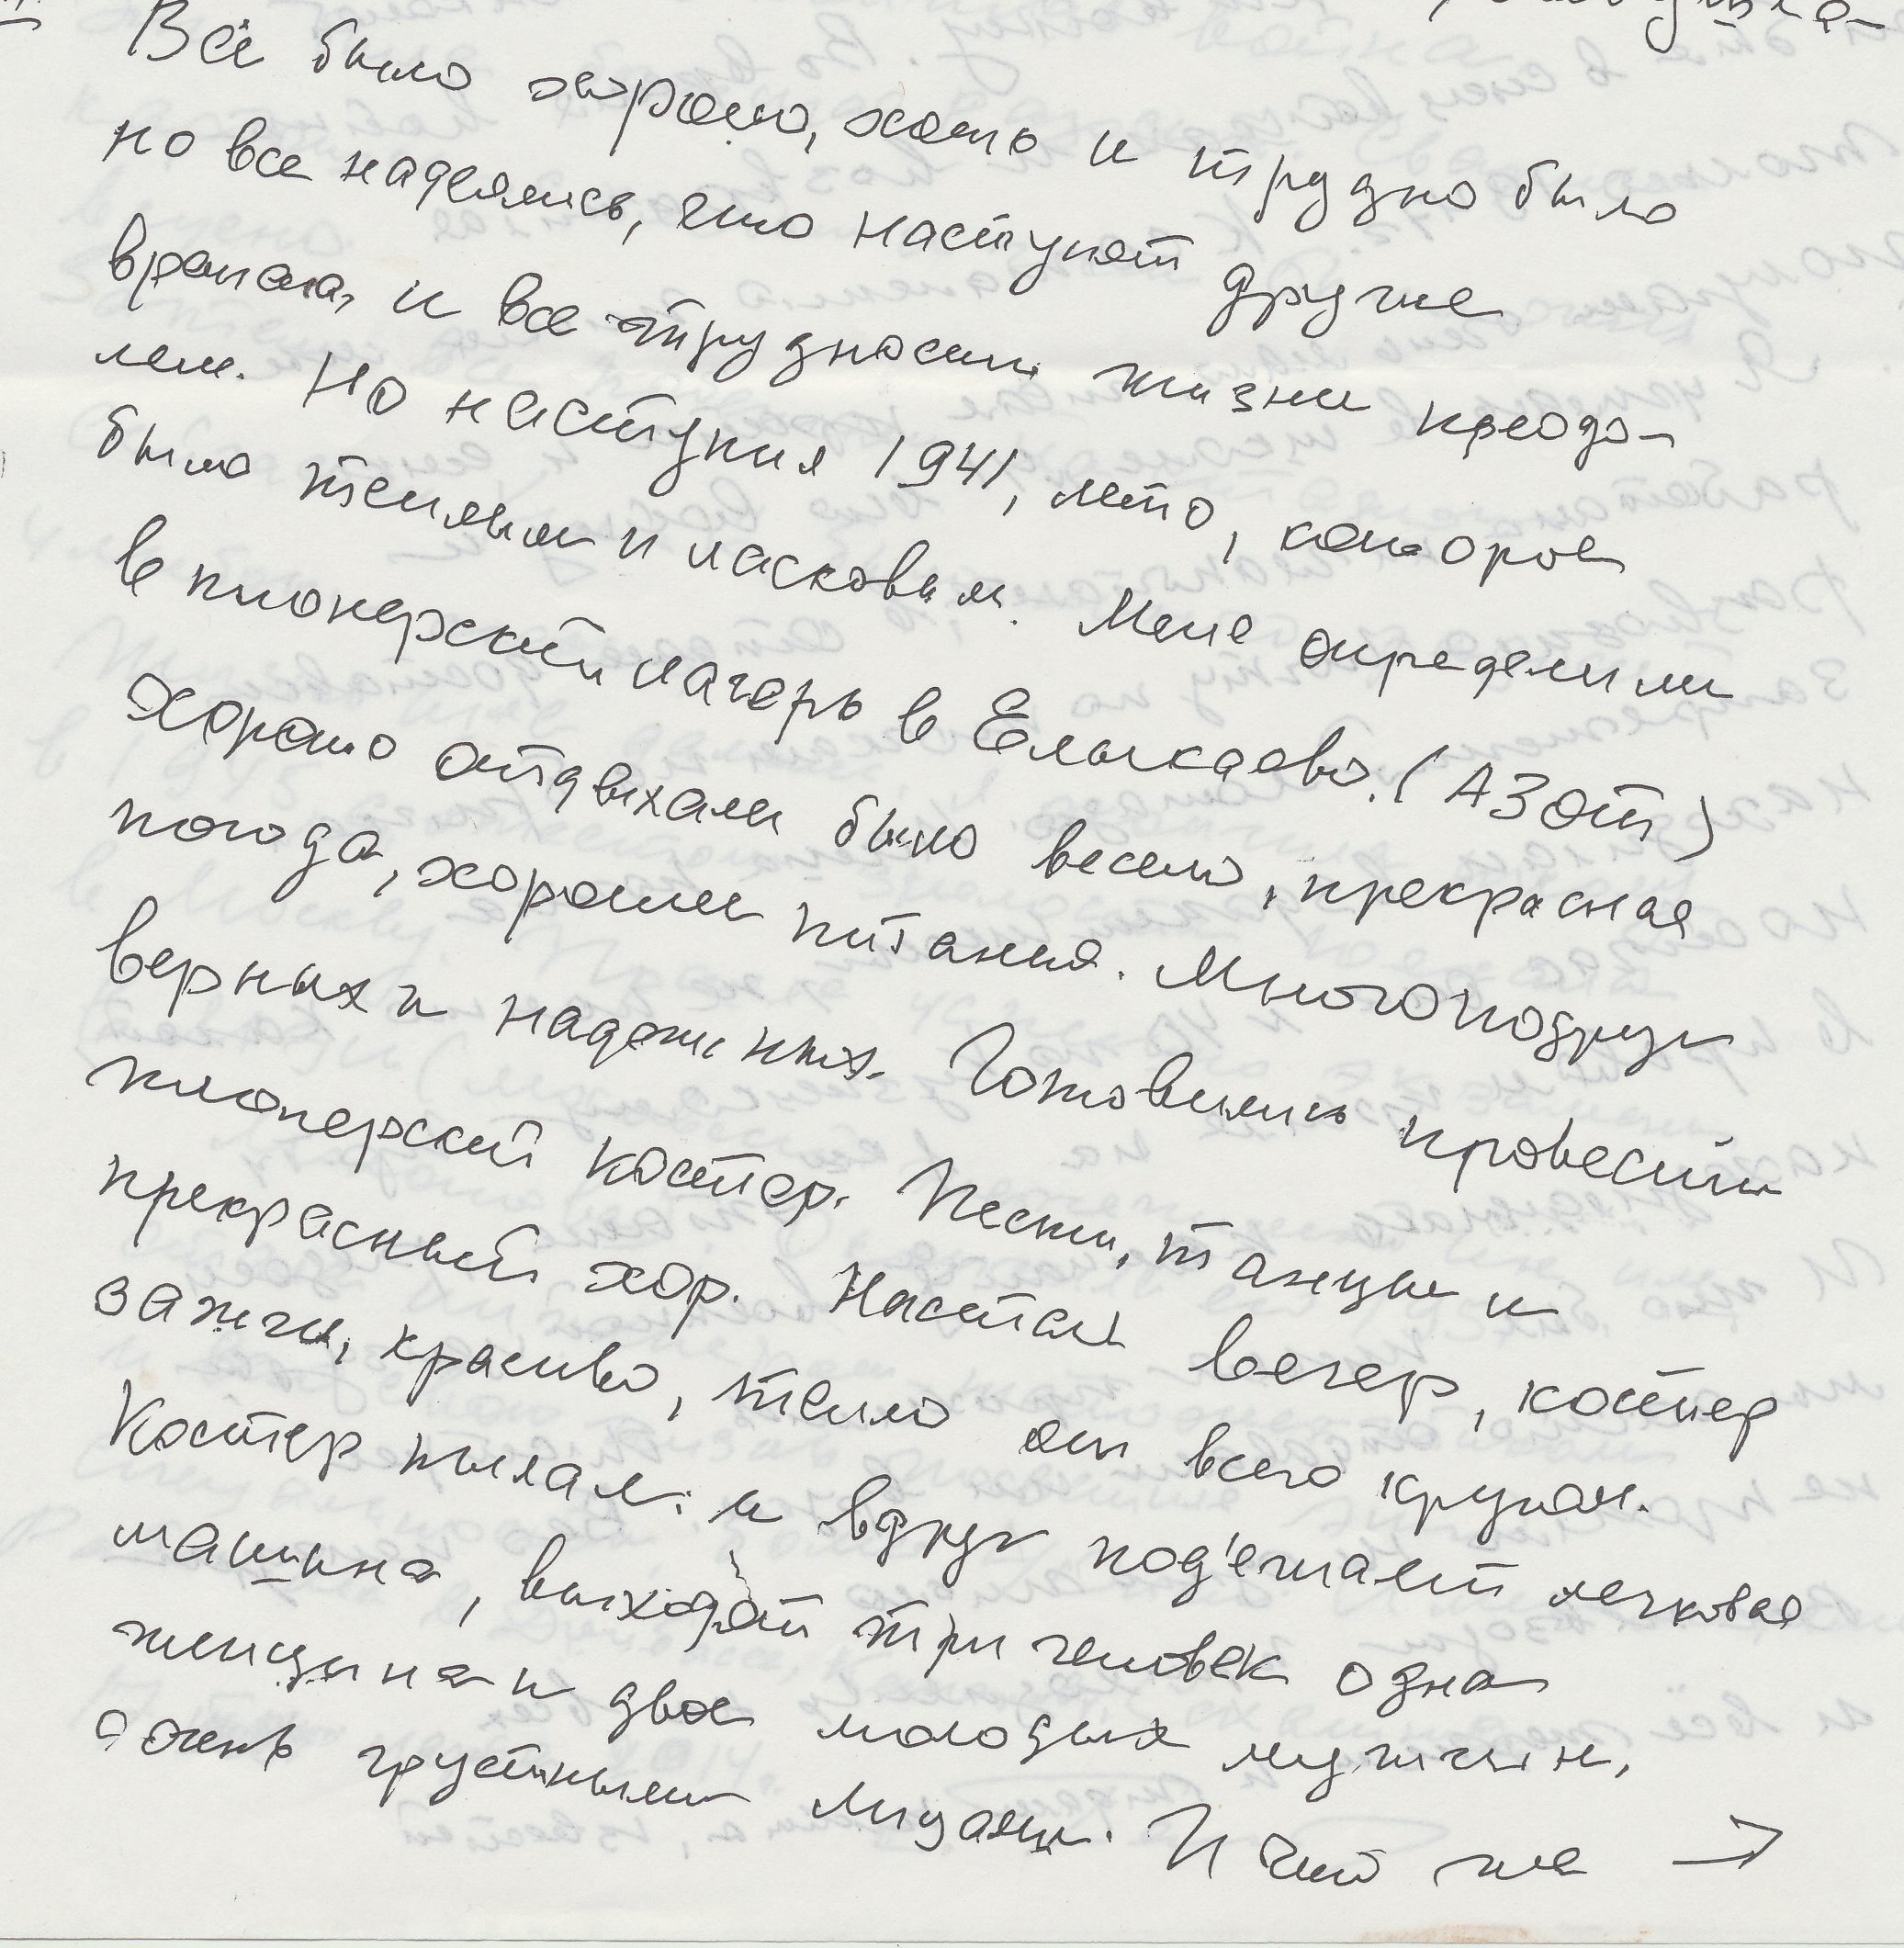 Всё было хорошо, хоть и трудно было
но все надеялись, что наступят другие
времена, и все трудности жизни преодо-
леем. Но наступил 1941, лето, которое
было теплым и ласковым. Меня определили
в пионерский лагерь в Елыкаево. (АЗОТ)
Хорошо отдыхали было весело, прекрасная
погода, хорошее питания. Много подруг
верных и надежных. Готовились провести
пионерский костер. Песни, танцы и
прекрасный хор. Настал вечер, костер
зажгли, красиво, тепло от всего кругом.
Костер пылал: и вдруг под'езжает легковая
машина, выходят три человек одна
женщина и двое молодых мужчин,
с очень грустными лицами. И что же →